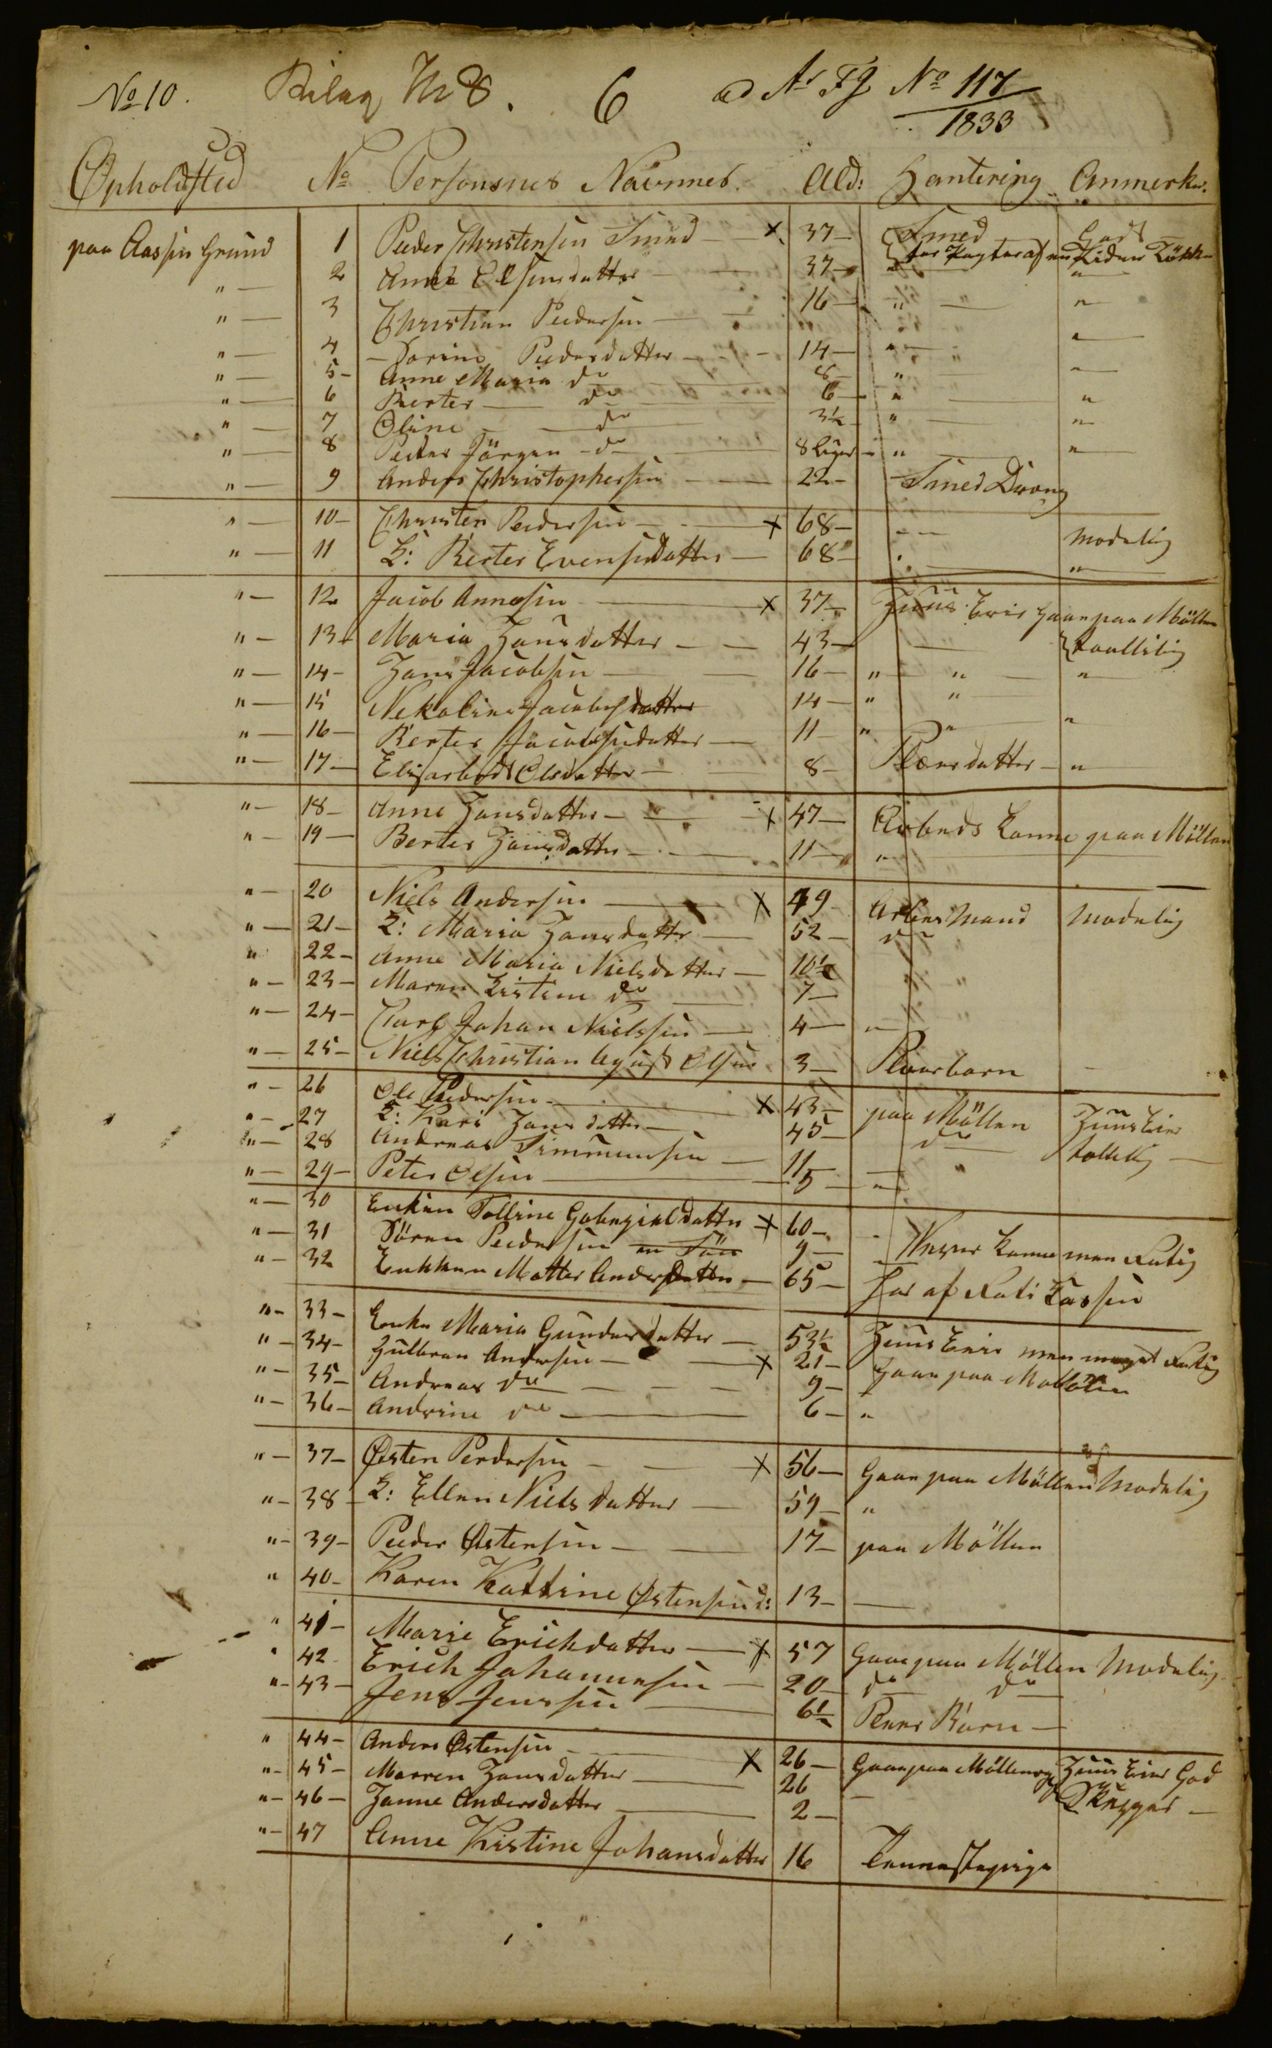 No 10. Bilag No 8. 6 ad No 117
1833
Opholdsted No Personernes Navnnes. Ald: Hantering Anmerkn:
paa Aassen Grund 1 Peder Christensen Smed x 37 Smed Godt
" 2 Anne Olsensdatter 37 "
" 3 Christian Pedersen 16 " "
" 4 Dorine Pedersdatter 14 " "
" 5 Anne Maria do 8 " "
" 6 Berter do 6 " "
" 7 Oline do 3½ " "
" 8 Peder Jörgen do 8 Uger " "
" 9 Anders Christophersen 22 Smed Dreng
" 10 Christen Pedersen x 68 Modelig
" 11 K: Berter Evensdatter 68 "
" 12 Jacob Annesen x 37 Huus Eier Gaar paa Möllen
" 13 Maria Hansdatter 43 Taallelig
" 14 Hans Jacobsen 16 " " "
" 15 Nekoline Jacobsdatter 14 " "
" 16 Berter Jacobsdatter 11 " " "
" 17 Elisabeth Olsdatter 8 Pleiedatter "
" 18 Anne Hansdatter x 47 Arbeds Konne paa Möllen
" 19 Berter Hansdatter 11 "
" 20 Niels Andersen x 49 Arbeds Mand Modelig
" 21 K: Maria Hansdatter 52 do
" 22 Anne Maria Nielsdatter 10½
" 23 Maren Kistine do 7
" 24 Carl Johan Nielssen 4 "
" 25 Niels Christian August Olsen 3 Pleiebarn
" 26 Ole Pedersen x 43 paa Möllen Huus Eier
" 27 K: Kari Hansdatter 45 do Tollelig
" 28 Andreas Simmensen 11
" 29 Peter Olsen 5 "
" 30 Enken Tolline Gabrieldatter x 60
" 31 Sören Pedersen en Sön 9 Vever Konne men Fatig
" 32 Enkken Matter Andersdatter 65 Har af Fati Kassen
" 33 Enke Maria Gundersdatter 53½ Huus Eier men meget Fatig
" 34 Gulbran Andersen x 21 Gaar paa Möllen
" 35 Andreas do 9 "
" 36 Andrine do 6 "
" 37 Østen Pedersen x 56 Gaar paa Möllen Modelig
" 38 K: Ellen Niels datter 59 "
" 39 Peder Østensen 17 paa Möllen
" 40 Karen Kattrine Østensend: 13
" 41 Marie Erichdatter x 57 Gaar paa Möllen Modelig
" 42 Erich Johannesen 20 do do
" 43 Jens Jenssen 6½ Pleie Barn
" 44 Anders Østensen x 26 Gaar paa Möllen og Huus Eier God
" 45 Marren Hansdatter 26
" 46 Hanne Andersdatter 2
" 47 Anne Kistine Johansdatter 16 Tennestepige